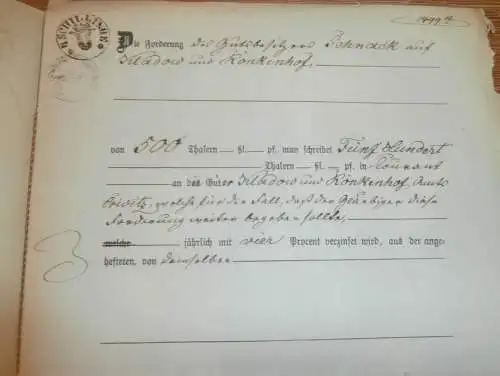 1499 a
MECKL:
Die Forderung des Gutsbesitzers Schnack auf
Kladow und Könkenhof,
von 500 Thalern — ßl. — pf. man schreibet Fünf Hundert
Thalern — ßl. — pf. in Courant
an das Güter Kladow und Könkenhof, Amts
Crivitz, welche für den Fall, daß der Gläubiger diese
Forderung weiter begeben sollte,
welche jährlich mit vier Procent verzinset wird, aus der ange-
hefteten, von demselben